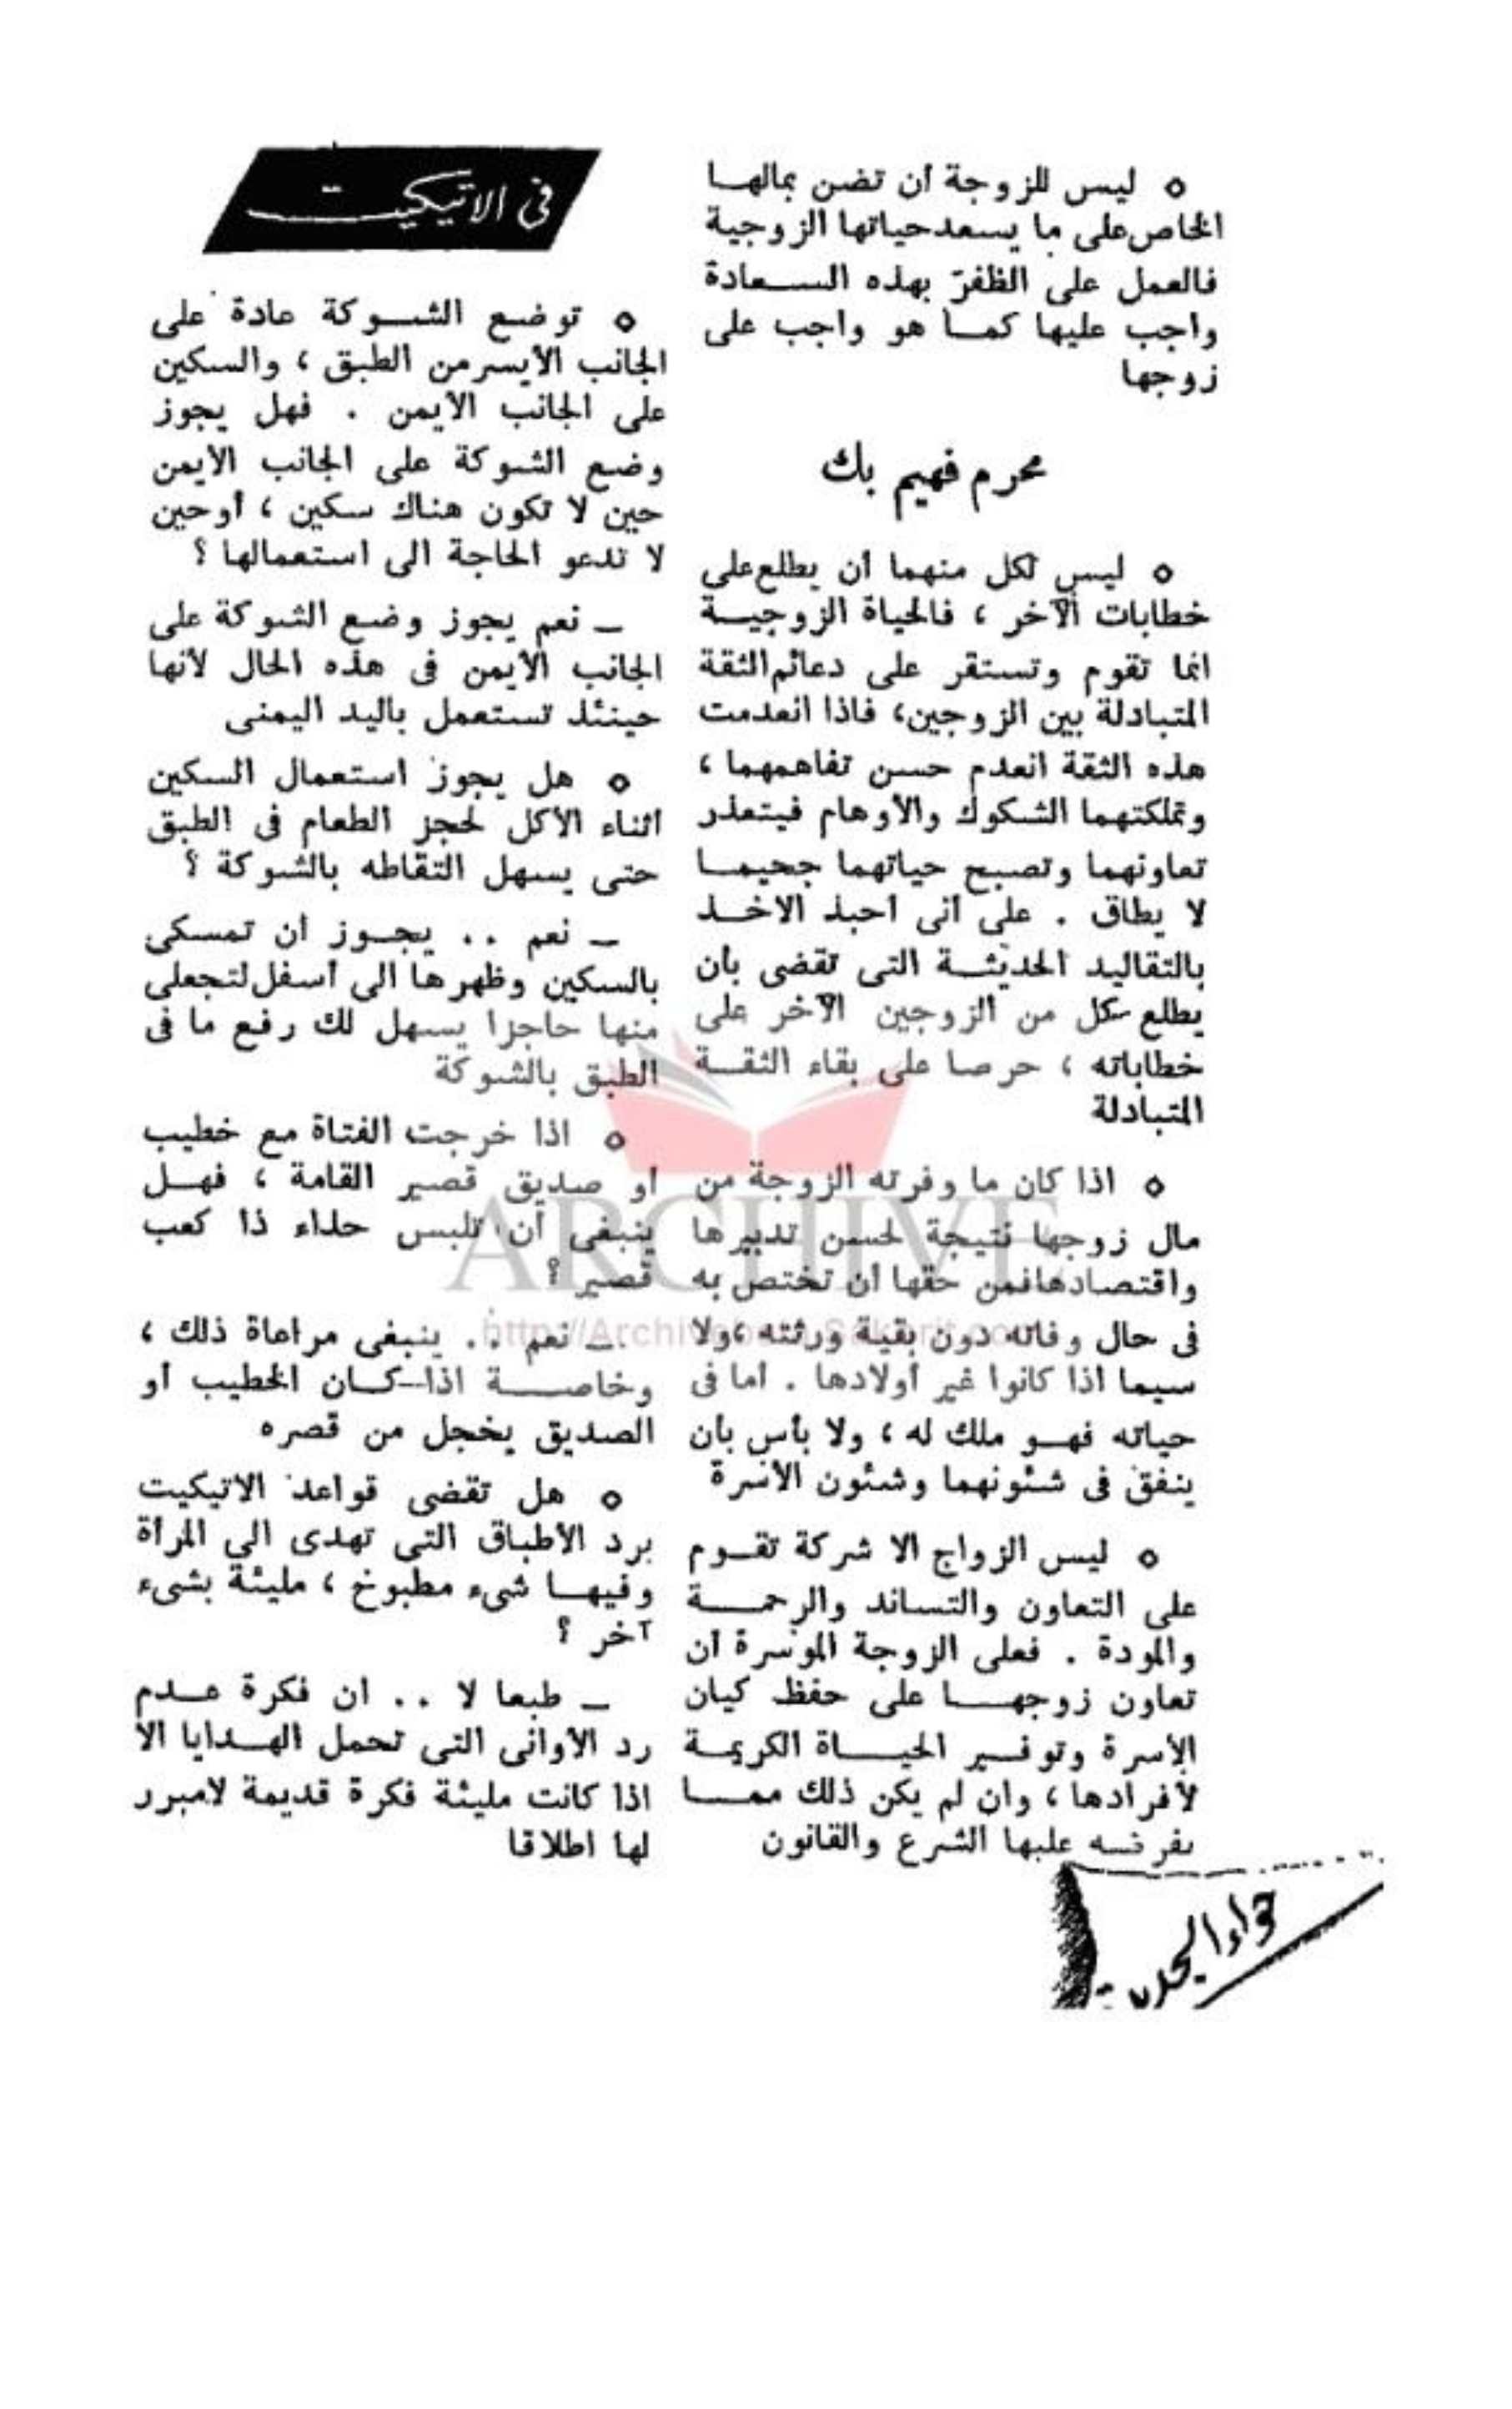 ○ ليس للزوجة أن تضن بمالها
الخاص على ما يسعد حياتها الزوجية
فالعمل على الظفر بهذه الســعادة
واجب عليها كمــا هو واجب على
زوجها
محرم فهيم بك
○ ليس لكل منهما أن يطلع على
خطابات الآخر ، فالحياة الزوجيــة
انما تقوم وتستقر على دعائم الثقة
المتبادلة بين الزوجين، فاذا انعدمت
هذه الثقة انعدم حسن تفاهمهما ،
وتملكتهما الشكوك والأوهام فيتعذر
تعاونهما وتصبح حياتهما جحيمــا
لا يطاق . على أنى أحبذ الاخــذ
بالتقاليد الحديثــة التى تقضى بأن
يطلع كل من الزوجين الآخر على
خطاباته ، حرصا على بقاء الثقــة
المتبادلة
○ اذا كان ما وفرته الزوجة من
مال زوجها نتيجة لحسن تدبيرها
واقتصادها فمن حقها أن تختص به
فى حال وفاته دون بقية ورثته ،ولا
سيما اذا كانوا غير أولادها . أما فى
حياته فهــو ملك له ، ولا بأس بأن
ينفق فى شئونهما وشئون الأسرة
○ ليس الزواج الا شركة تقــوم
على التعاون والتساند والرحمــة
والمودة . فعلى الزوجة الموسرة أن
تعاون زوجهــا على حفظ كيان
الأسرة وتوفــير الحيــاة الكريمــة
لأفرادها ، وان لم يكن ذلك ممــا
يفرضه عليها الشرع والقانون
فى الاتيكيت
○ توضع الشــوكة عادة على
الجانب الأيسر من الطبق ، والسكين
على الجانب الأيمن . فهل يجوز
وضع الشوكة على الجانب الأيمن
حين لا تكون هناك سكين ، أوحين
لا تدعو الحاجة الى استعمالها ؟
ــ نعم يجوز وضع الشوكة على
الجانب الأيمن فى هذه الحال لأنها
حينئذ تستعمل باليد اليمنى
○ هل يجوز استعمال السكين
أثناء الأكل لحجز الطعام فى الطبق
حتى يسهل التقاطه بالشوكة ؟
ــ نعم .. يجــوز أن تمسكى
بالسكين وظهرها الى أسفل لتجعلى
منها حاجزا يسهل لك رفع ما فى
الطبق بالشوكة
○ اذا خرجت الفتاة مع خطيب
أو صديق قصير القامة ، فهــل
ينبغى أن تلبس حذاء ذا كعب
قصير ؟
ــ نعم .. ينبغى مراعاة ذلك ،
وخاصــة اذا كــان الخطيب أو
الصديق يخجل من قصره
○ هل تقضى قواعد الاتيكيت
برد الأطباق التى تهدى الى المرأة
وفيهــا شىء مطبوخ ، مليئة بشىء
آخر ؟
ــ طبعا لا .. ان فكرة عــدم
رد الأوانى التى تحمل الهــدايا الا
اذا كانت مليئة فكرة قديمة لامبرر
لها اطلاقا
ARCHIVE